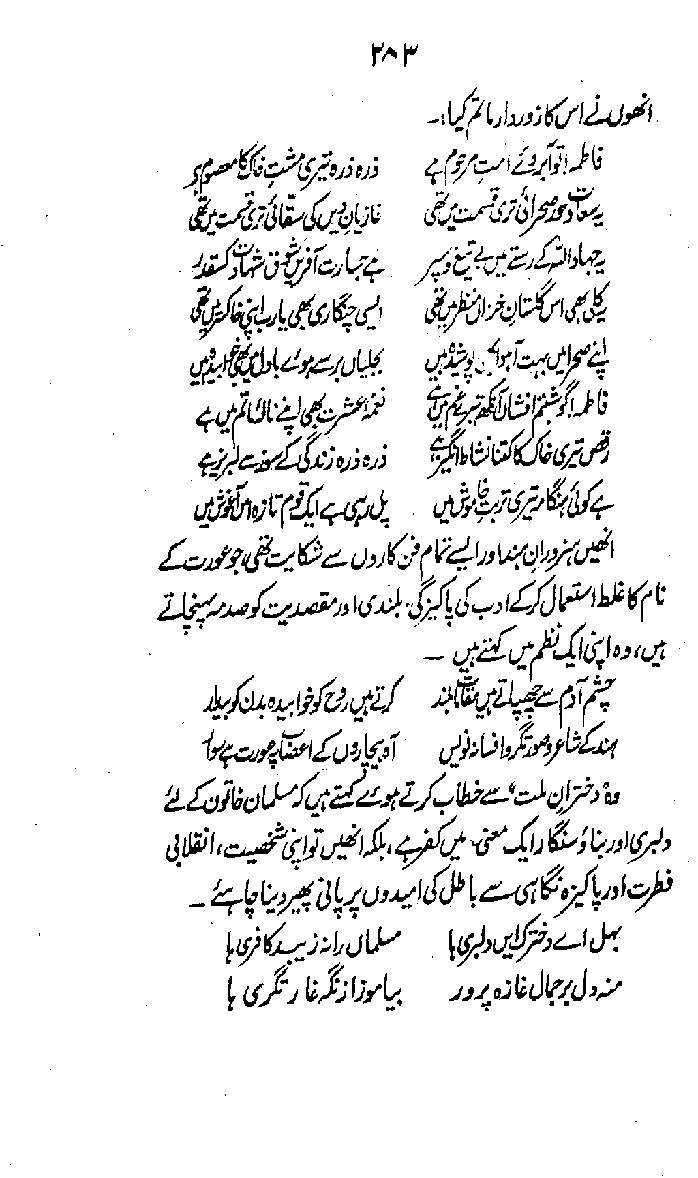 ۲۸۳
انھوں نے اس کا زوردار ماتم کیا:۔
فاطمہ! تو آبروئے امتِ مرحوم ہے ذرہ ذرہ تیری مشتِ خاک کا معصوم ہے
یہ سعادت حورِ صحرائی تری قسمت میں تھی غازیانِ دیں کی سقائی تری قسمت میں تھی
یہ جہاد اللہ کے رستے میں بے تیغ و سپر ہے جسارت آفریں شوقِ شہادت کس قدر
یہ کلی بھی اس گلستانِ خزاں منظر میں تھی ایسی چنگاری بھی یارب اپنی خاکستر میں تھی
اپنے صحرا میں بہت آہو ابھی پوشیدہ ہیں بجلیاں برسے ہوئے بادل میں بھی خوابیدہ ہیں
فاطمہ! گو شبنم افشاں آنکھ تیرے غم میں ہے نغمۂ عشرت بھی اپنے نالۂ ماتم میں ہے
رقص تیری خاک کا کتنا نشاط انگیز ہے ذرہ ذرہ زندگی کے سوز سے لبریز ہے
ہے کوئی ہنگامہ تیری تربتِ خاموش میں پل رہی ہے ایک قوم تازہ اس آغوش میں
انھیں ہنرورانِ ہند اور ایسے تمام فن کاروں سے شکایت تھی، جو عورت کے
نام کا غلط استعمال کرکے ادب کی پاکیزگی، بلندی اور مقصدیت کو صدمہ پہنچاتے
ہیں، وہ اپنی ایک نظم میں کہتے ہیں ۔
چشمِ آدم سے چھپاتے ہیں مقاماتِ بلند کرتے ہیں روح کو خوابیدہ بدن کو بیدار
ہند کے شاعر و صورتگر و افسانہ نویس آہ بیچاروں کے اعصاب پہ عورت ہے سوار
وہ ’دخترانِ ملت‘ سے خطاب کرتے ہوئے کہتے ہیں کہ مسلمان خاتون کے لئے
دلبری اور بناؤ سنگار ایک معنیٰ میں کفر ہے، بلکہ انھیں تو اپنی شخصیت، انقلابی
فطرت اور پاکیزہ نگاہی سے باطل کی امیدوں پر پانی پھیر دینا چاہئے ۔
بہل اے دخترک ایں دلبری ہا مسلماں را نہ زیبد کافری ہا
منہ دل بر جمال غازہ پرور بیاموز از نگہ غارتگری ہا